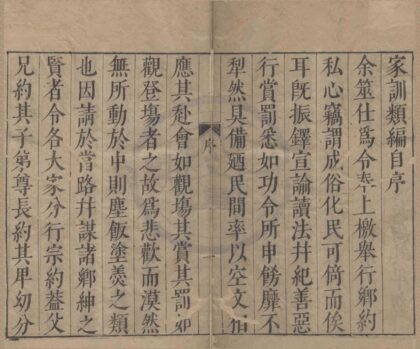 家訓類編自序
余筮仕爲令奉上檄舉行鄉約
私心竊謂成俗化民可倚而俟
耳旣振鐸宣諭讀法幷紀善惡
行賞罰悉如功令所申飭靡不
犁然具備廼民間率以空文相
序
一
應其赴會如觀場其賞其罰如
觀登場者之故爲悲歡而漠然
無所動於中則塵飯塗羹之類
也因請於當路幷謀諸鄉紳之
賢者令各大家分行宗約葢父
兄約其子弟尊長約其卑幼分